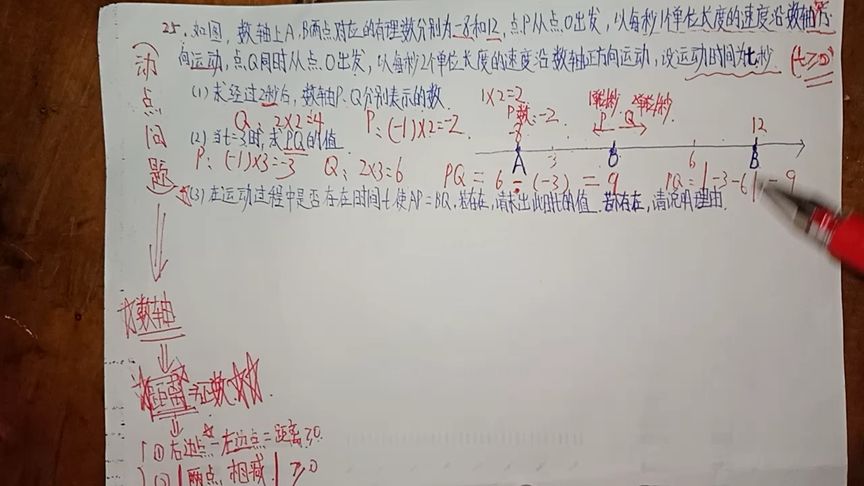 25. 如图,数轴上A、B两点对应的有理数分别为-8和12,点P从点O出发,以每秒1个单位长度的速度沿数轴负方
向运动,点Q同时从点O出发,以每秒2个单位长度的速度沿数轴正方向运动,设运动时间为t秒. (t≥0)
(1) 求经过2秒后,数轴P、Q分别表示的数.
1×2=2
P: -2
Q: 2×2=4 P: (-1)×2=-2
(2) 当t=3时,求PQ的值
P: (-1)×3=-3 Q: 2×3=6
P Q
-8 12
A -3 O 6 B
PQ = 6-(-3) = 9 PQ=|-3-6|=9
(3) 在运动过程中是否存在时间t使AP=BQ,若存在,请求出此时t的值.若不存在,请说明理由.
动点问题
数轴
距离
① 右边点-左边点=距离≥0.
② |两点相减|≥0